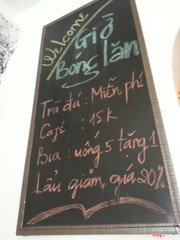 Welcome
Giờ
Bóng lăn
Trà đá : Miễn phí
Café : 15k
Bia : uống 5 tặng 1
Lẩu giảm giá 20%